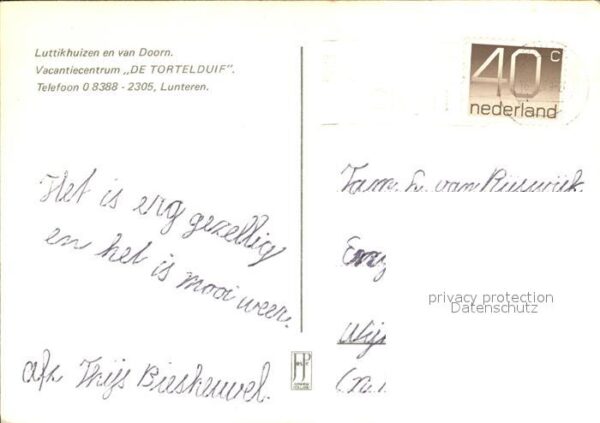 Luttikhuizen en van Doorn.
Vacantiecentrum „DE TORTELDUIF".
Telefoon 0 8388 - 2305, Lunteren.
40c
nederland
Het is erg gezellig
en het is mooi weer.
afz Thijs Bieshewel.
Fam. L. van Rijswijk
privacy protection
Datenschutz
Wij